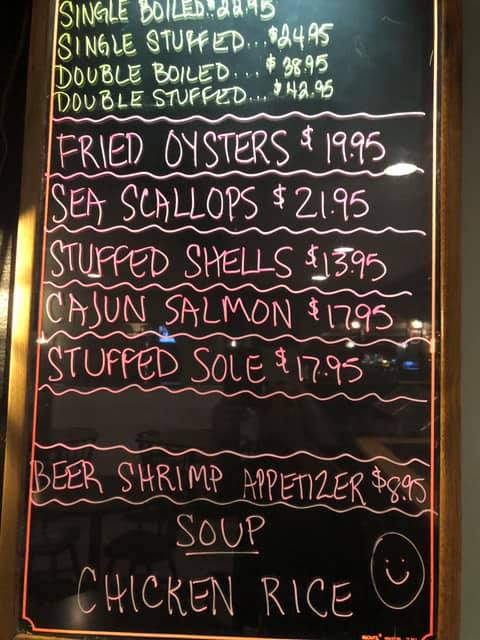 SINGLE BOILED..$22.95
SINGLE STUFFED...$24.95
DOUBLE BOILED...$38.95
DOUBLE STUFFED...$42.95
FRIED OYSTERS $19.95
SEA SCALLOPS $21.95
STUFFED SHELLS $13.95
CAJUN SALMON $17.95
STUFFED SOLE $17.95
BEER SHRIMP APPETIZER $8.95
SOUP
CHICKEN RICE